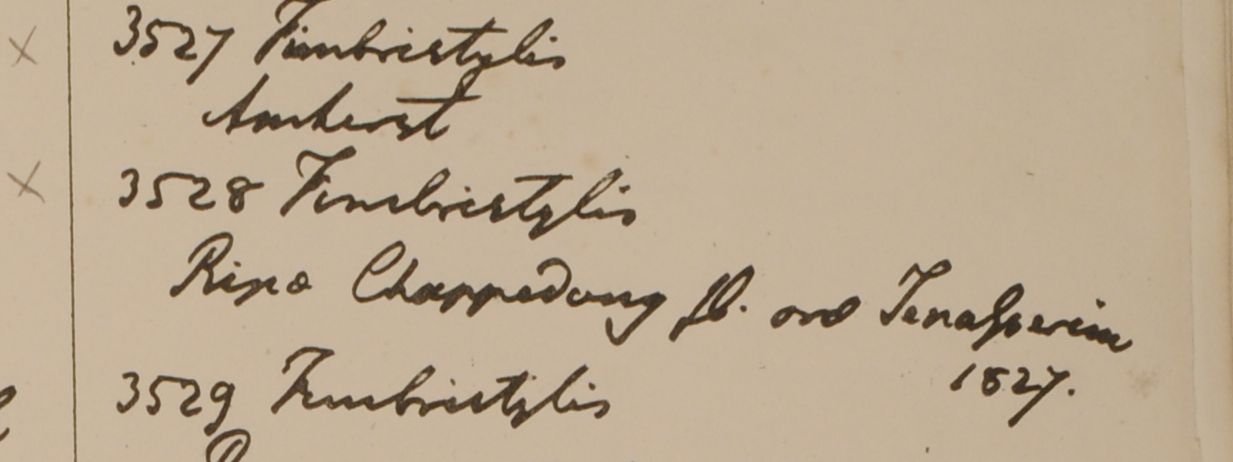 3527 Fimbristylis
Amherst
3528 Fimbristylis
Ripa Chappedong fl. ora Tenasserim
1827.
3529 Fimbristylis